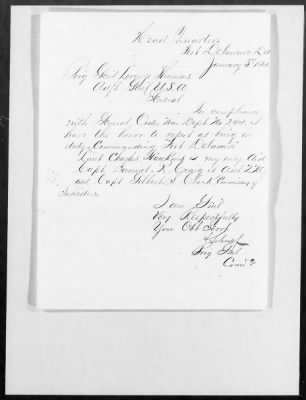 Head Quarters
Fort Delaware Del
January 5th
Brig Genl Lorenzo Thomas
Adjt Genl U.S.A
General
In compliance
with General Order War Dept No 244. I
have the honor to report as being on
duty Commanding Fort Delaware
Lieut Charles Hawkins is my only Aid
Capt Samuel R. Craig is
and Capt Gilbert S. Clark Commissary of
Subsistence
I am Genl
Very Respectfully
Your Obt Servt
Brig Genl
Comd'g